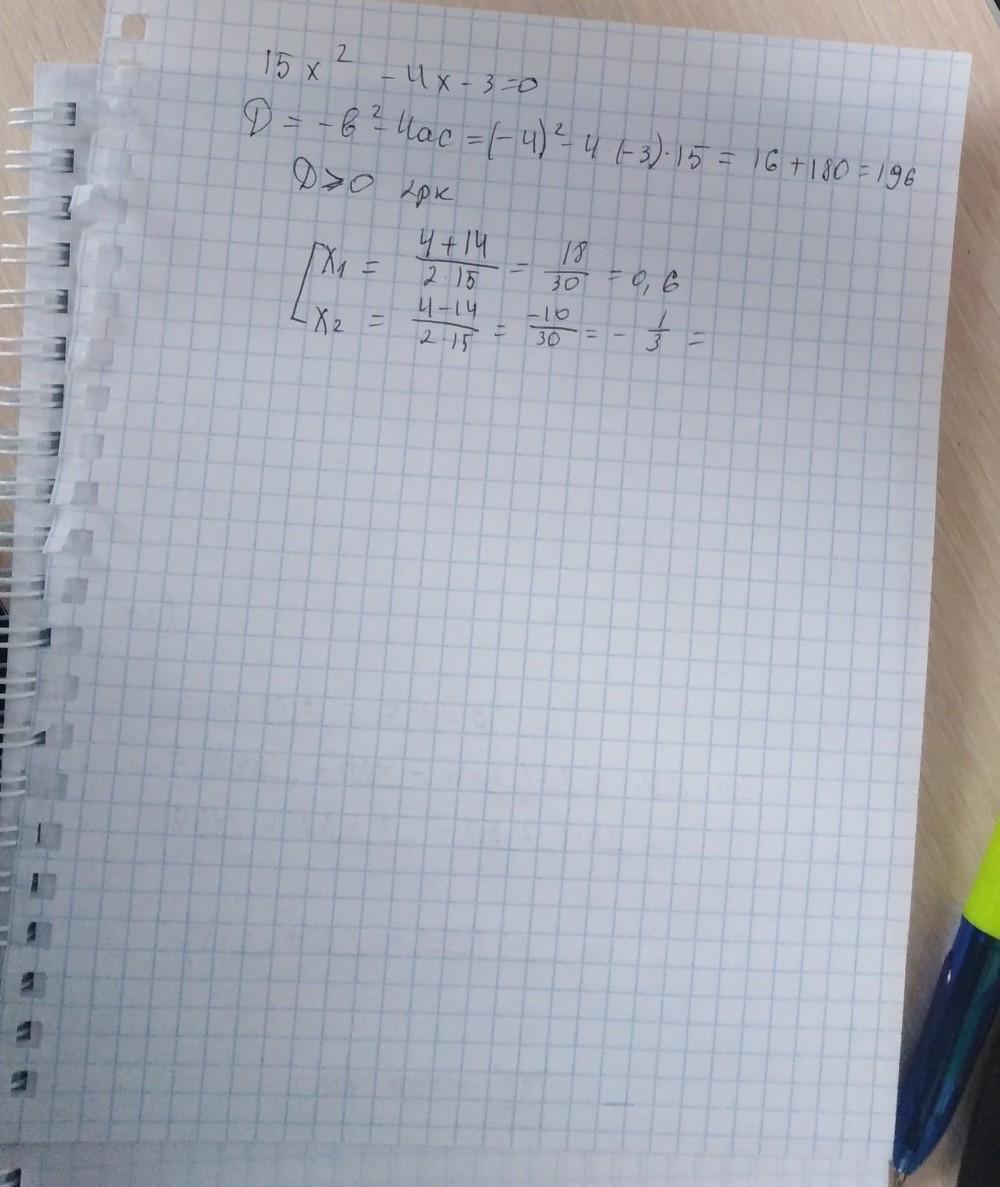 15x² - 4x - 3 = 0
D = -b² - 4ac = (-4)² - 4 (-3)·15 = 16 + 180 = 196
D > 0 2рк
[x₁ = (4+14)/(2·15) = 18/30 = 0,6
x₂ = (4-14)/(2·15) = -10/30 = - 1/3 =